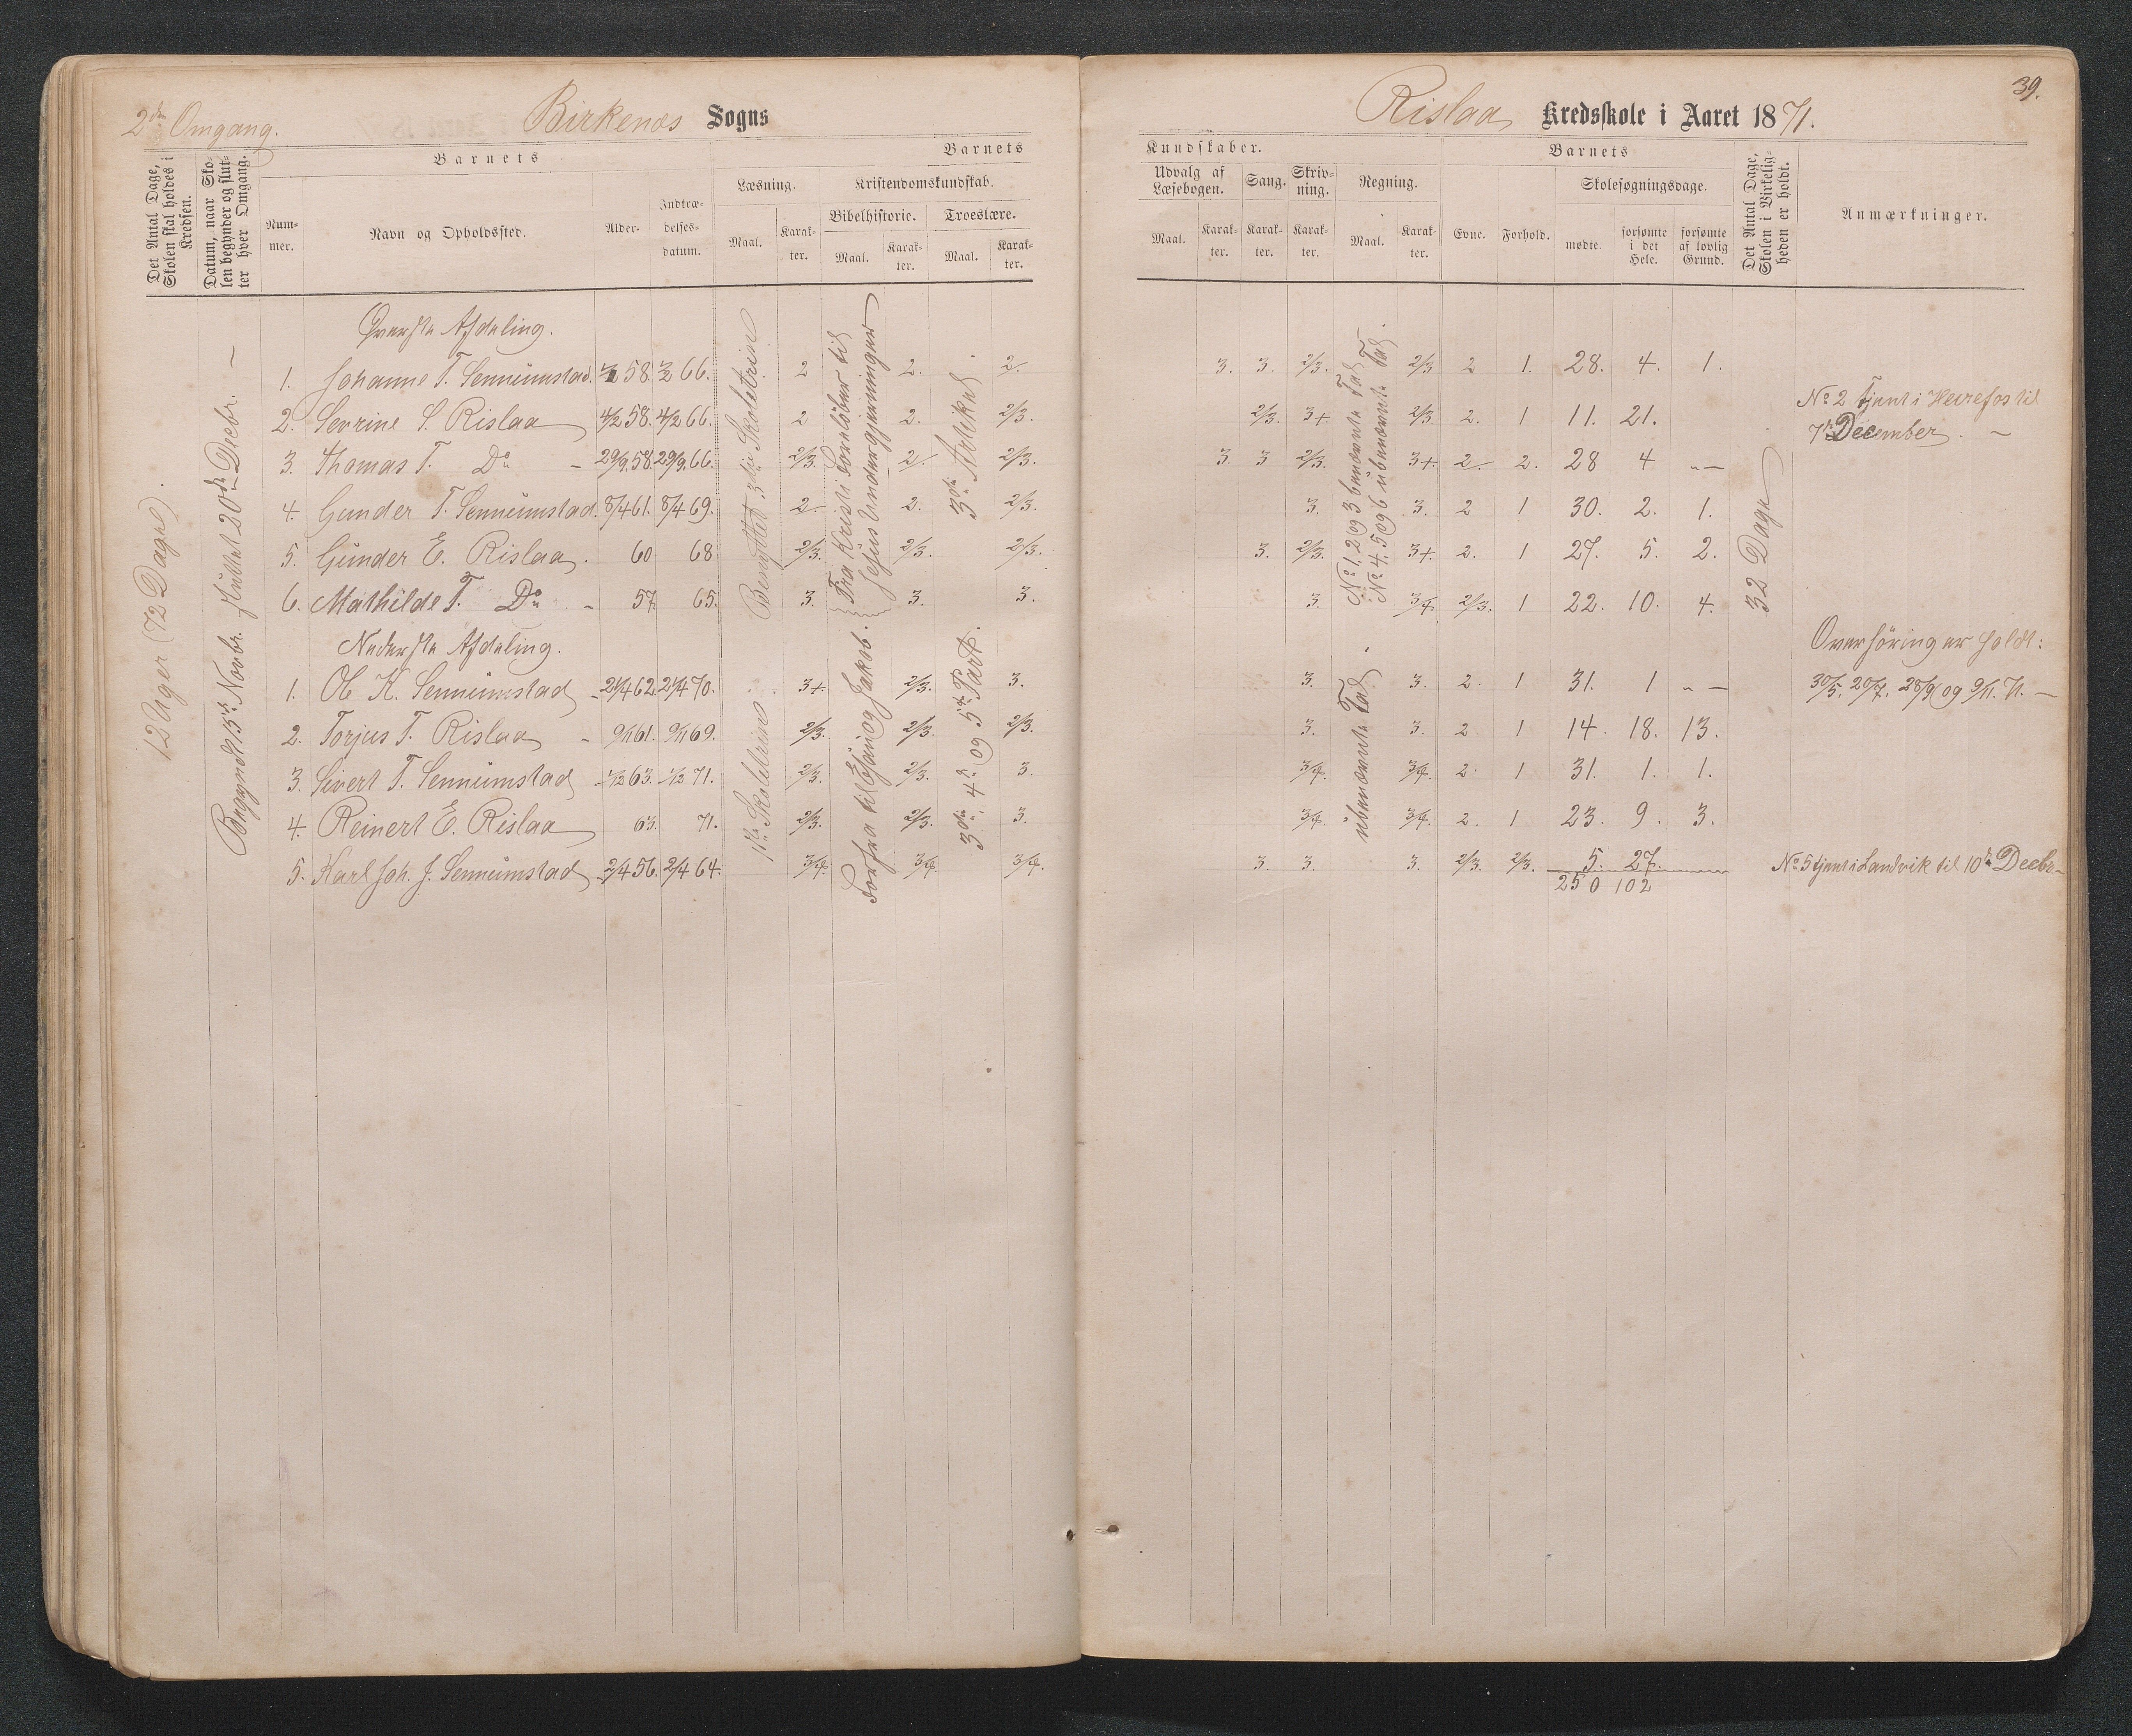 39.
2den Omgang.
Birkenæs Sogns
Rislaa Kredsskole i Aaret 1871.
Det Antal Dage, Skolen skal holdes i Kredsen.
Datum, naar Skolen begynder og slutter hver Omgang.
Barnets
Nummer.
Navn og Opholdssted.
Alder.
Indtrædelsesdatum.
Barnets
Læsning.
Maal.
Karakter.
Kristendomskundskab.
Bibelhistorie.
Maal.
Karakter.
Troeslære.
Maal.
Karakter.
Kundskaber.
Udvalg af Læsebogen.
Maal.
Karakter.
Sang.
Karakter.
Skrivning.
Karakter.
Regning.
Maal.
Karakter.
Barnets
Evne.
Forhold.
Skolesøgningsdage.
mødte.
forsømte i det Hele.
forsømte af lovlig Grund.
Det Antal Dage, Skolen i Virkeligheden er holdt.
Anmærkninger.
12 Uger (72 Dage).
Begyndt 13de Novbr. sluttet 20de Decbr. —
Øverste Afdeling.
1. Johanne T. Sennumstad. 58. 66. 2 2. 2. 3. 3. 2/3. 2/3 2 1. 28. 4. 1.
2. Sevrine S. Rislaa 4/2 58. 4/2 66. 2 2. 2/3. 2/3. 3+. 2/3. 2. 1 11. 21.
3. Thomas T. Do - 29/9.58. 29/9.66. 2/3. 2/. 2/3. 3. 3 2/3. 3+. 2/. 2. 28 4 " —
4. Gunder T. Sennumstad. 8/4 61. 8/4 69. 2/. 2. 2/3. 3. 3. 2 1 30. 2. 1.
5. Gunder E. Rislaa. 60 68 2/3. 2/3. 2/3. 3. 2/3. 3+. 2. 1 27. 5. 2.
6. Mathilde T. Do - 57 65. 3. 3. 3. 3. 3/4. 2/3. 1 22. 10. 4.
Benyttet 3die Skoletrin
Fra Kristi Forløber til
Jesus Undergjerninger
3die Artikel
No 1, 2 og 3 benævnte Tal
No 4, 5 og 6 ubenævnte Tal.
32 Dage
No 2 tjent i Heirefos til
7de December. —
Nederste Afdeling.
1. Ole K. Sennumstad 62 70. 3+. 2/3. 3. 3. 3. 2. 1 31. 1 " —
2. Torjus T. Rislaa - 9/11 61. 9/11 69. 2/3. 2/3. 2/3. 3. 3. 2 1 14. 18. 13.
3. Sivert T. Sennumstad 1/2 63. 1/2 71. 2/3. 2/3. 3. 3/4. 3/4. 2. 1 31. 1. 1.
4. Reinert E. Rislaa 63. 71. 2/3. 2/3. 3. 3/4. 3/4. 2. 1 23. 9. 3.
5. Karl Joh. J. Sennumstad 2/4 56. 2/4 64. 3/4. 3/4. 3/4. 3. 3. 3. 2/3. 2/3. 5. 27.
250 102
1ste Skoletrin
Forfra til Esau og Jakob.
3die, 4de og 5te Part.
ubenævnte Tal.
Overhøring er holdt:
30/5, 20/7, 28/9 og 9/11. 71. —
No 5 tjent i Landvik til 10de Decbr. —